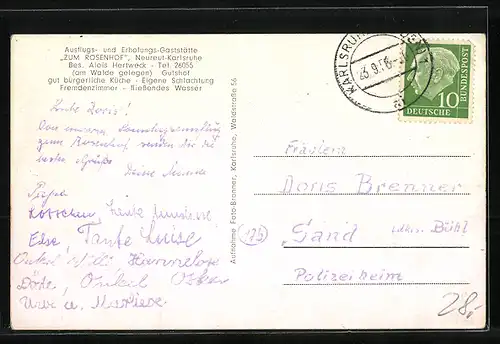 Ausflugs- und Erholungs-Gaststätte
„ZUM ROSENHOF", Neureut-Karlsruhe
Bes. Alois Hertweck - Tel. 26055
(am Walde gelegen) Gutshof
gut bürgerliche Küche - Eigene Schlachtung
Fremdenzimmer - fließendes Wasser
Liebe Doris!
Von unserem
zum Rosenhof senden dir die
besten Grüße
Deine Mama
Papa
Lottchen, Tante
Else, Tante Luise
Onkel Willi Hannelore
Dode, Onkel Oskar
Uwe u. Marliese
Aufnahme Foto-Bronner, Karlsruhe, Waldstraße 56
KARLSRUHE
23.9.56
10
DEUTSCHE
BUNDESPOST
Fräulein
Doris Brenner
(17b) Sand Bühl
Polizeiheim
28,-